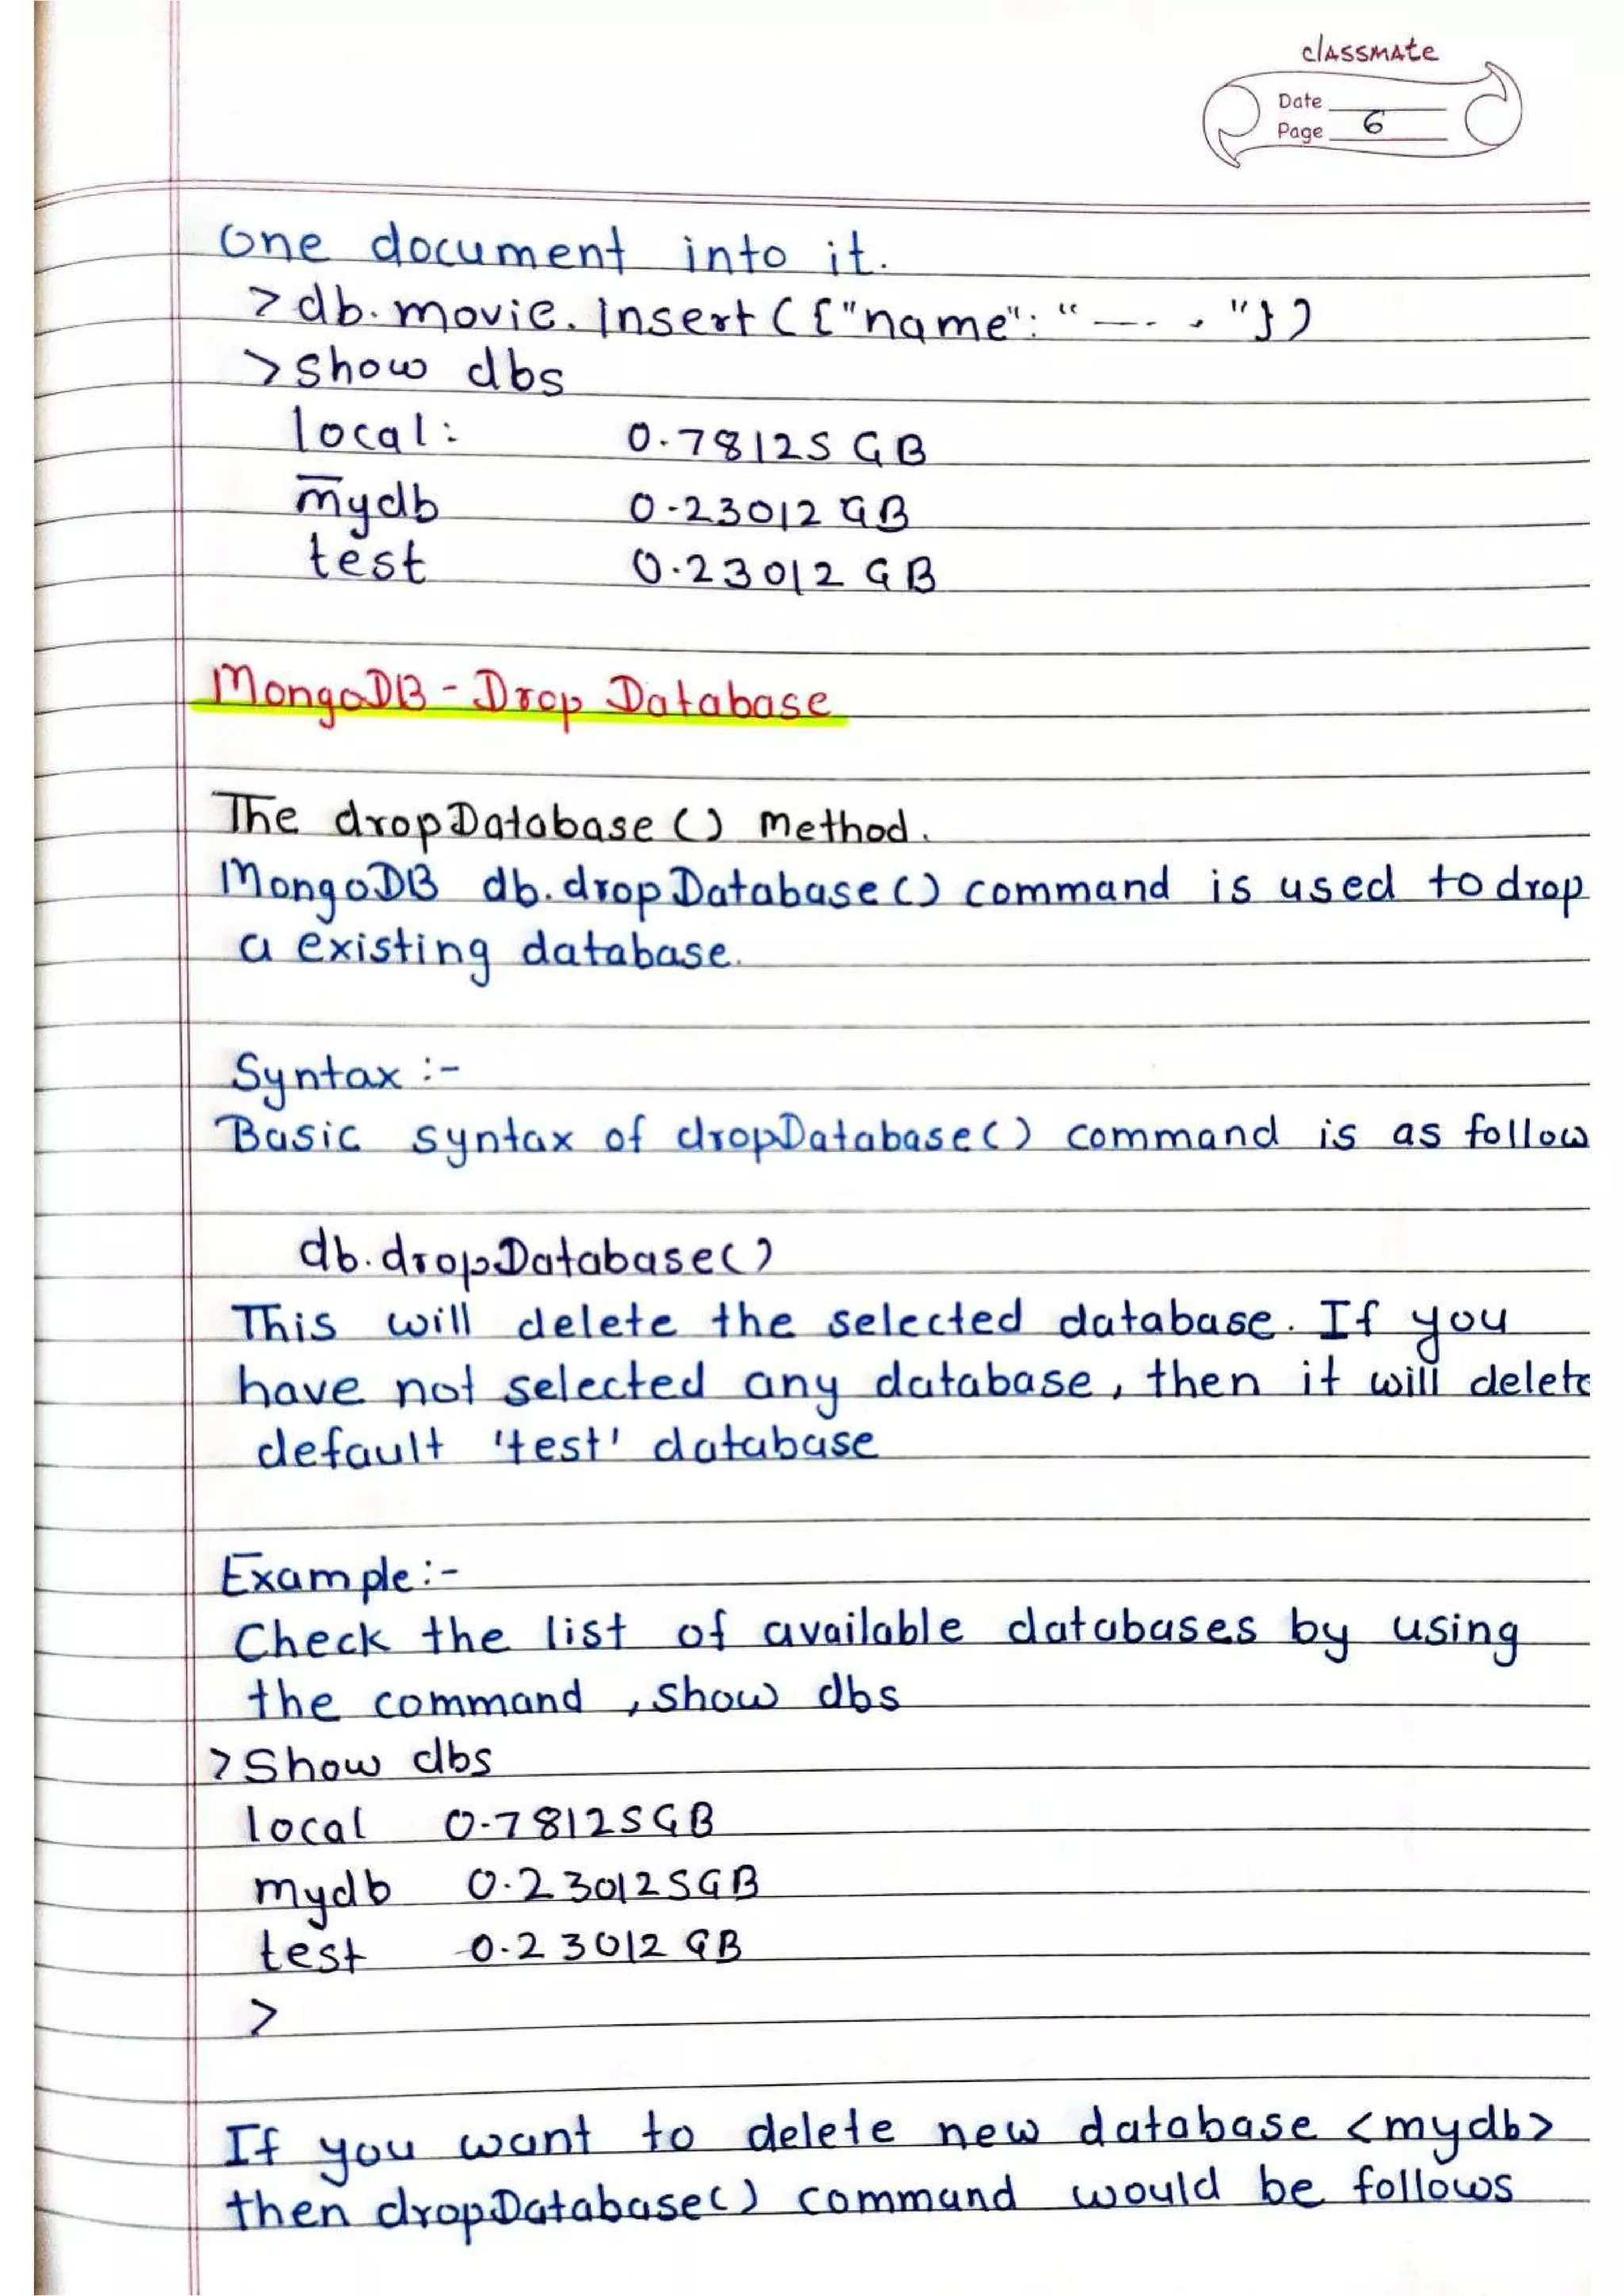 classmate
Date
Page 6
One document into it.
>db.movie.Insert({"name": "—-- . "})
>show dbs
local: 0.78125 GB
mydb 0.23012 GB
test 0.23012 GB
MongoDB - Drop Database
The dropDatabase() Method.
MongoDB db.dropDatabase() command is used to drop
a existing database.
Syntax :-
Basic syntax of dropDatabase() command is as follow
db.dropDatabase()
This will delete the selected database. If you
have not selected any database, then it will delete
default 'test' database
Example:-
Check the list of available databases by using
the command , show dbs
>Show dbs
local 0.78125GB
mydb 0.230125GB
test 0.23012 GB
>
If you want to delete new database <mydb>
then dropDatabase() command would be follows